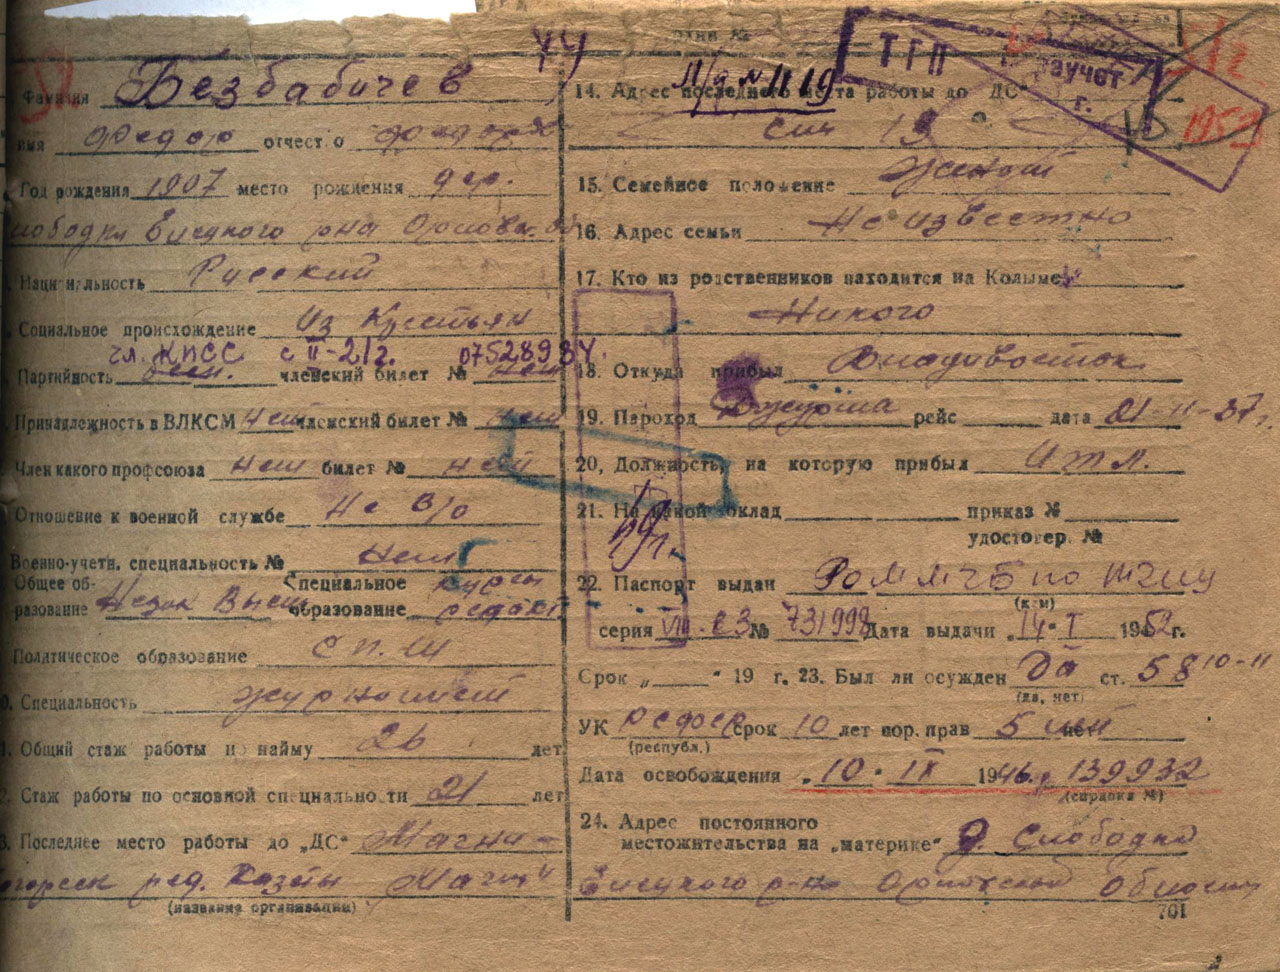 ТГП
Фамилия Безбабичев
имя Федор отчест о
Год рождения 1907 место рождения дер.
Слободка р-на
Национальность Русский
Социальное происхождение Из Крестьян
чл. КПСС с II-21г. 07528984.
Партийность членский билет № нет
Принадлежность в ВЛКСМ нет членский билет № нет
Член какого профсоюза нет билет № нет
Отношение к военной службе Не в/о
Военно-учетн. специальность № нет
Общее образование Незак Высш Специальное образование Курсы редакт
Политическое образование
Специальность журналист
Общий стаж работы по найму 26 лет
Стаж работы по основной специальности 21 лет
Последнее место работы до „ДС“ Магни-
тогорск ред. газеты
(название организации)
14. Адрес последнего места работы до „ДС“
П/я № 1119
15. Семейное положение Женат
16. Адрес семьи Не известно
17. Кто из родственников находится на Колыме
Никого
18. Откуда прибыл Владивосток
19. Пароход Джурма рейс дата 21-II-37г.
20, Должность, на которую прибыл ИТЛ.
21. На какой оклад приказ №
удостовер. №
22. Паспорт выдан
(кем)
серия VIII-СЗ № 731998 Дата выдачи „14“ I 1952г.
Срок „ “ 19 г. 23. Был ли осужден Да ст. 58 10-11
(да, нет)
УК РСФСР срок 10 лет пор. прав 5 лет
(республ.)
Дата освобождения „10“ IX 1946г. 139932
(справка №)
24. Адрес постоянного
местожительства на „материке“ д. Слободка
р-на Орловской области
701